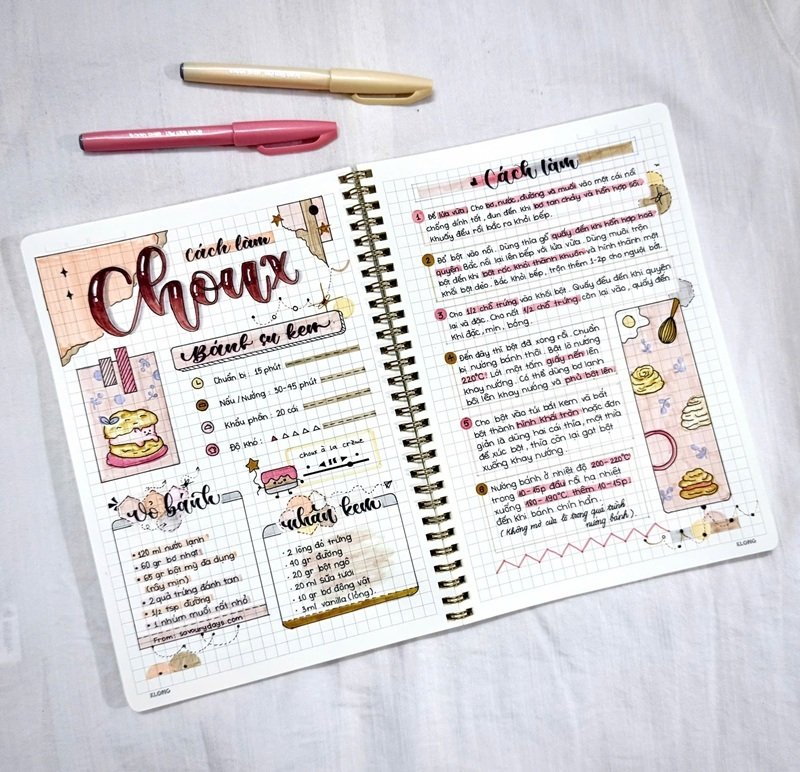 Cách làm
Choux
Bánh su kem
Chuẩn bị : 15 phút
Nấu / Nướng : 30-45 phút
Khẩu phần : 20 cái
Độ khó :
choux à la crème
vỏ bánh
• 120 ml nước lạnh
• 60 gr bơ nhạt
• 65 gr bột mỳ đa dụng
(rây mịn)
• 2 quả trứng đánh tan
• 1/2 tsp đường
• 1 nhúm muối rất nhỏ
From: savourydays.com
nhân kem
• 2 lòng đỏ trứng
• 40 gr đường
• 20 gr bột ngô
• 20 ml sữa tươi
• 10 gr bơ động vật
• 3ml vanilla (lỏng).
KLONG
Cách làm
1 Để lửa vừa. Cho bơ, nước, đường và muối vào một cái nồi
chống dính tốt, đun đến khi bơ tan chảy và hỗn hợp sôi.
khuấy đều rồi bắc ra khỏi bếp.
2 Đổ bột vào nồi. Dùng thìa gỗ quấy đến khi hỗn hợp hoà
quyện. Bắc nồi lại lên bếp với lửa vừa. Dùng muôi trộn
bột đến khi bột róc khỏi thành khuôn và hình thành một
khối bột dẻo. Bắc khỏi bếp, trộn thêm 1-2p cho nguội bớt.
3 Cho 1/2 chỗ trứng vào khối bột. Quấy đều đến khi quyện
lại và đặc. Cho nốt 1/2 chỗ trứng còn lại vào, quấy đến
khi đặc, mịn, bóng.
4 Đến đây thì bột đã xong rồi. Chuẩn
bị nướng bánh thôi. Bật lò nướng
220°C. Lót một tấm giấy nến lên
khay nướng. Có thể dùng bơ lạnh
bôi lên khay nướng và phủ bột lên.
5 Cho bột vào túi bắt kem và bắt
bột thành hình khối tròn hoặc đơn
giản là dùng hai cái thìa, một thìa
để xúc bột, thìa còn lại gạt bột
xuống khay nướng.
6 Nướng bánh ở nhiệt độ 200-220°C
trong 10-15p đầu rồi hạ nhiệt
xuống 180-190°C thêm 10-15p.
đến khi bánh chín hẳn.
(Không mở cửa lò trong quá trình
nướng bánh).
KLONG